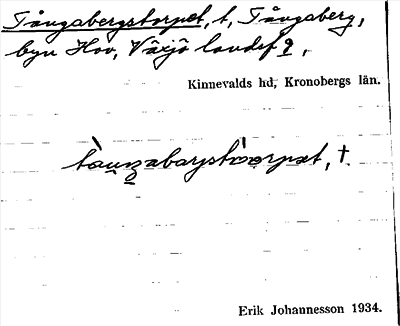 Tångabergstorpet, t, Tångaberg,
byn Hov, Växjö landsf
Kinnevalds hd, Kronobergs län.
t.
Erik Johannesson 1934.